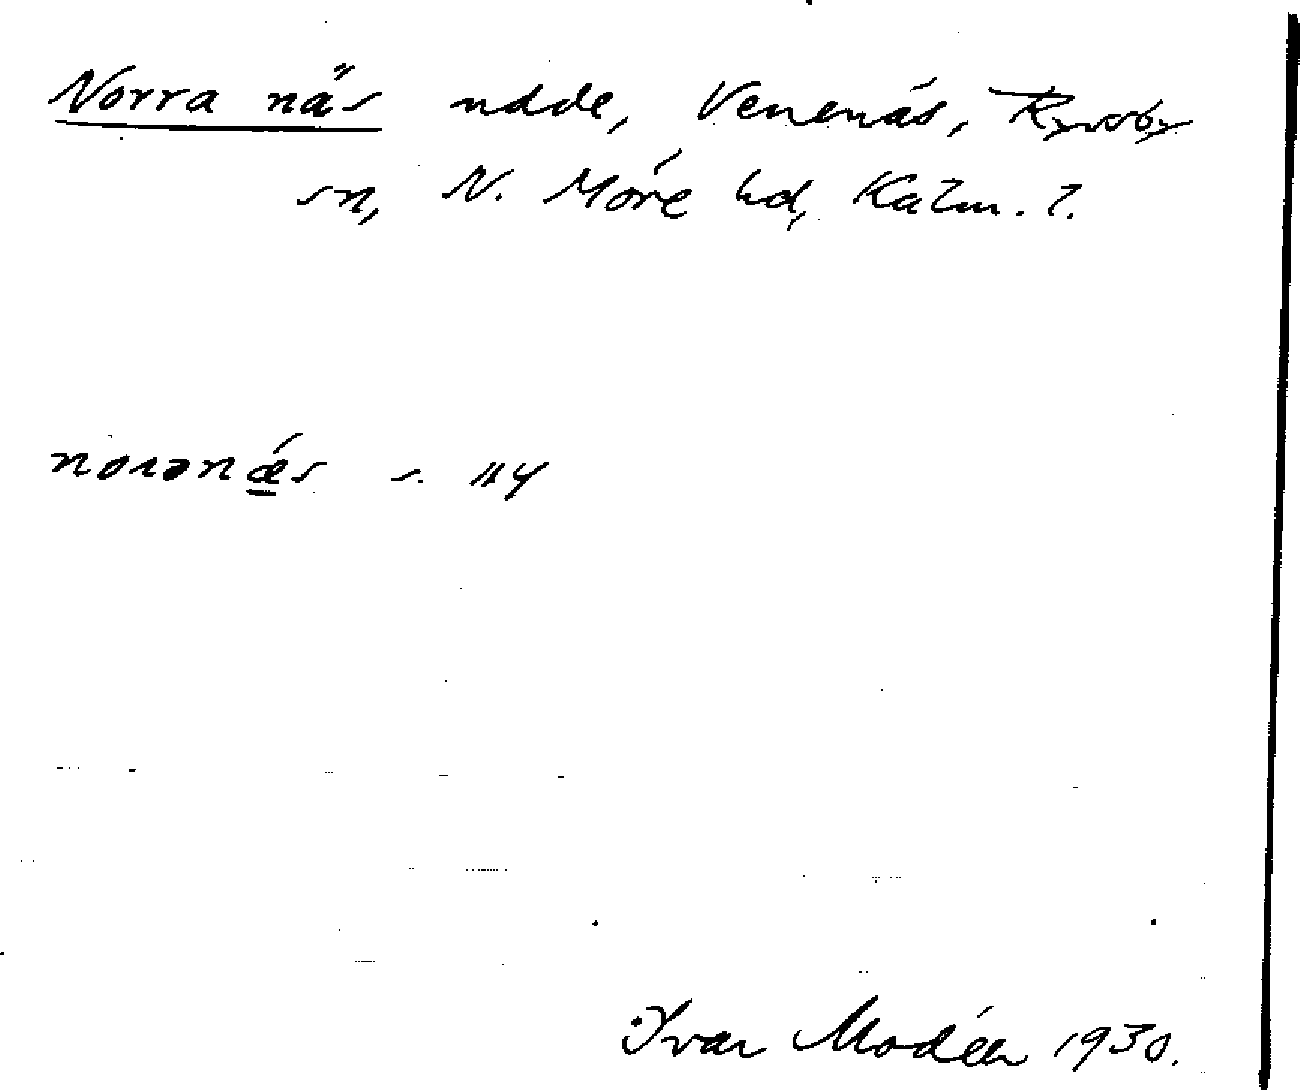 Norra näs udde, Venenäs, Ryssby
sn, N. Möre hd, Kalm. l.
norənǽ̲s s. 114
Ivar Modéer 1930.